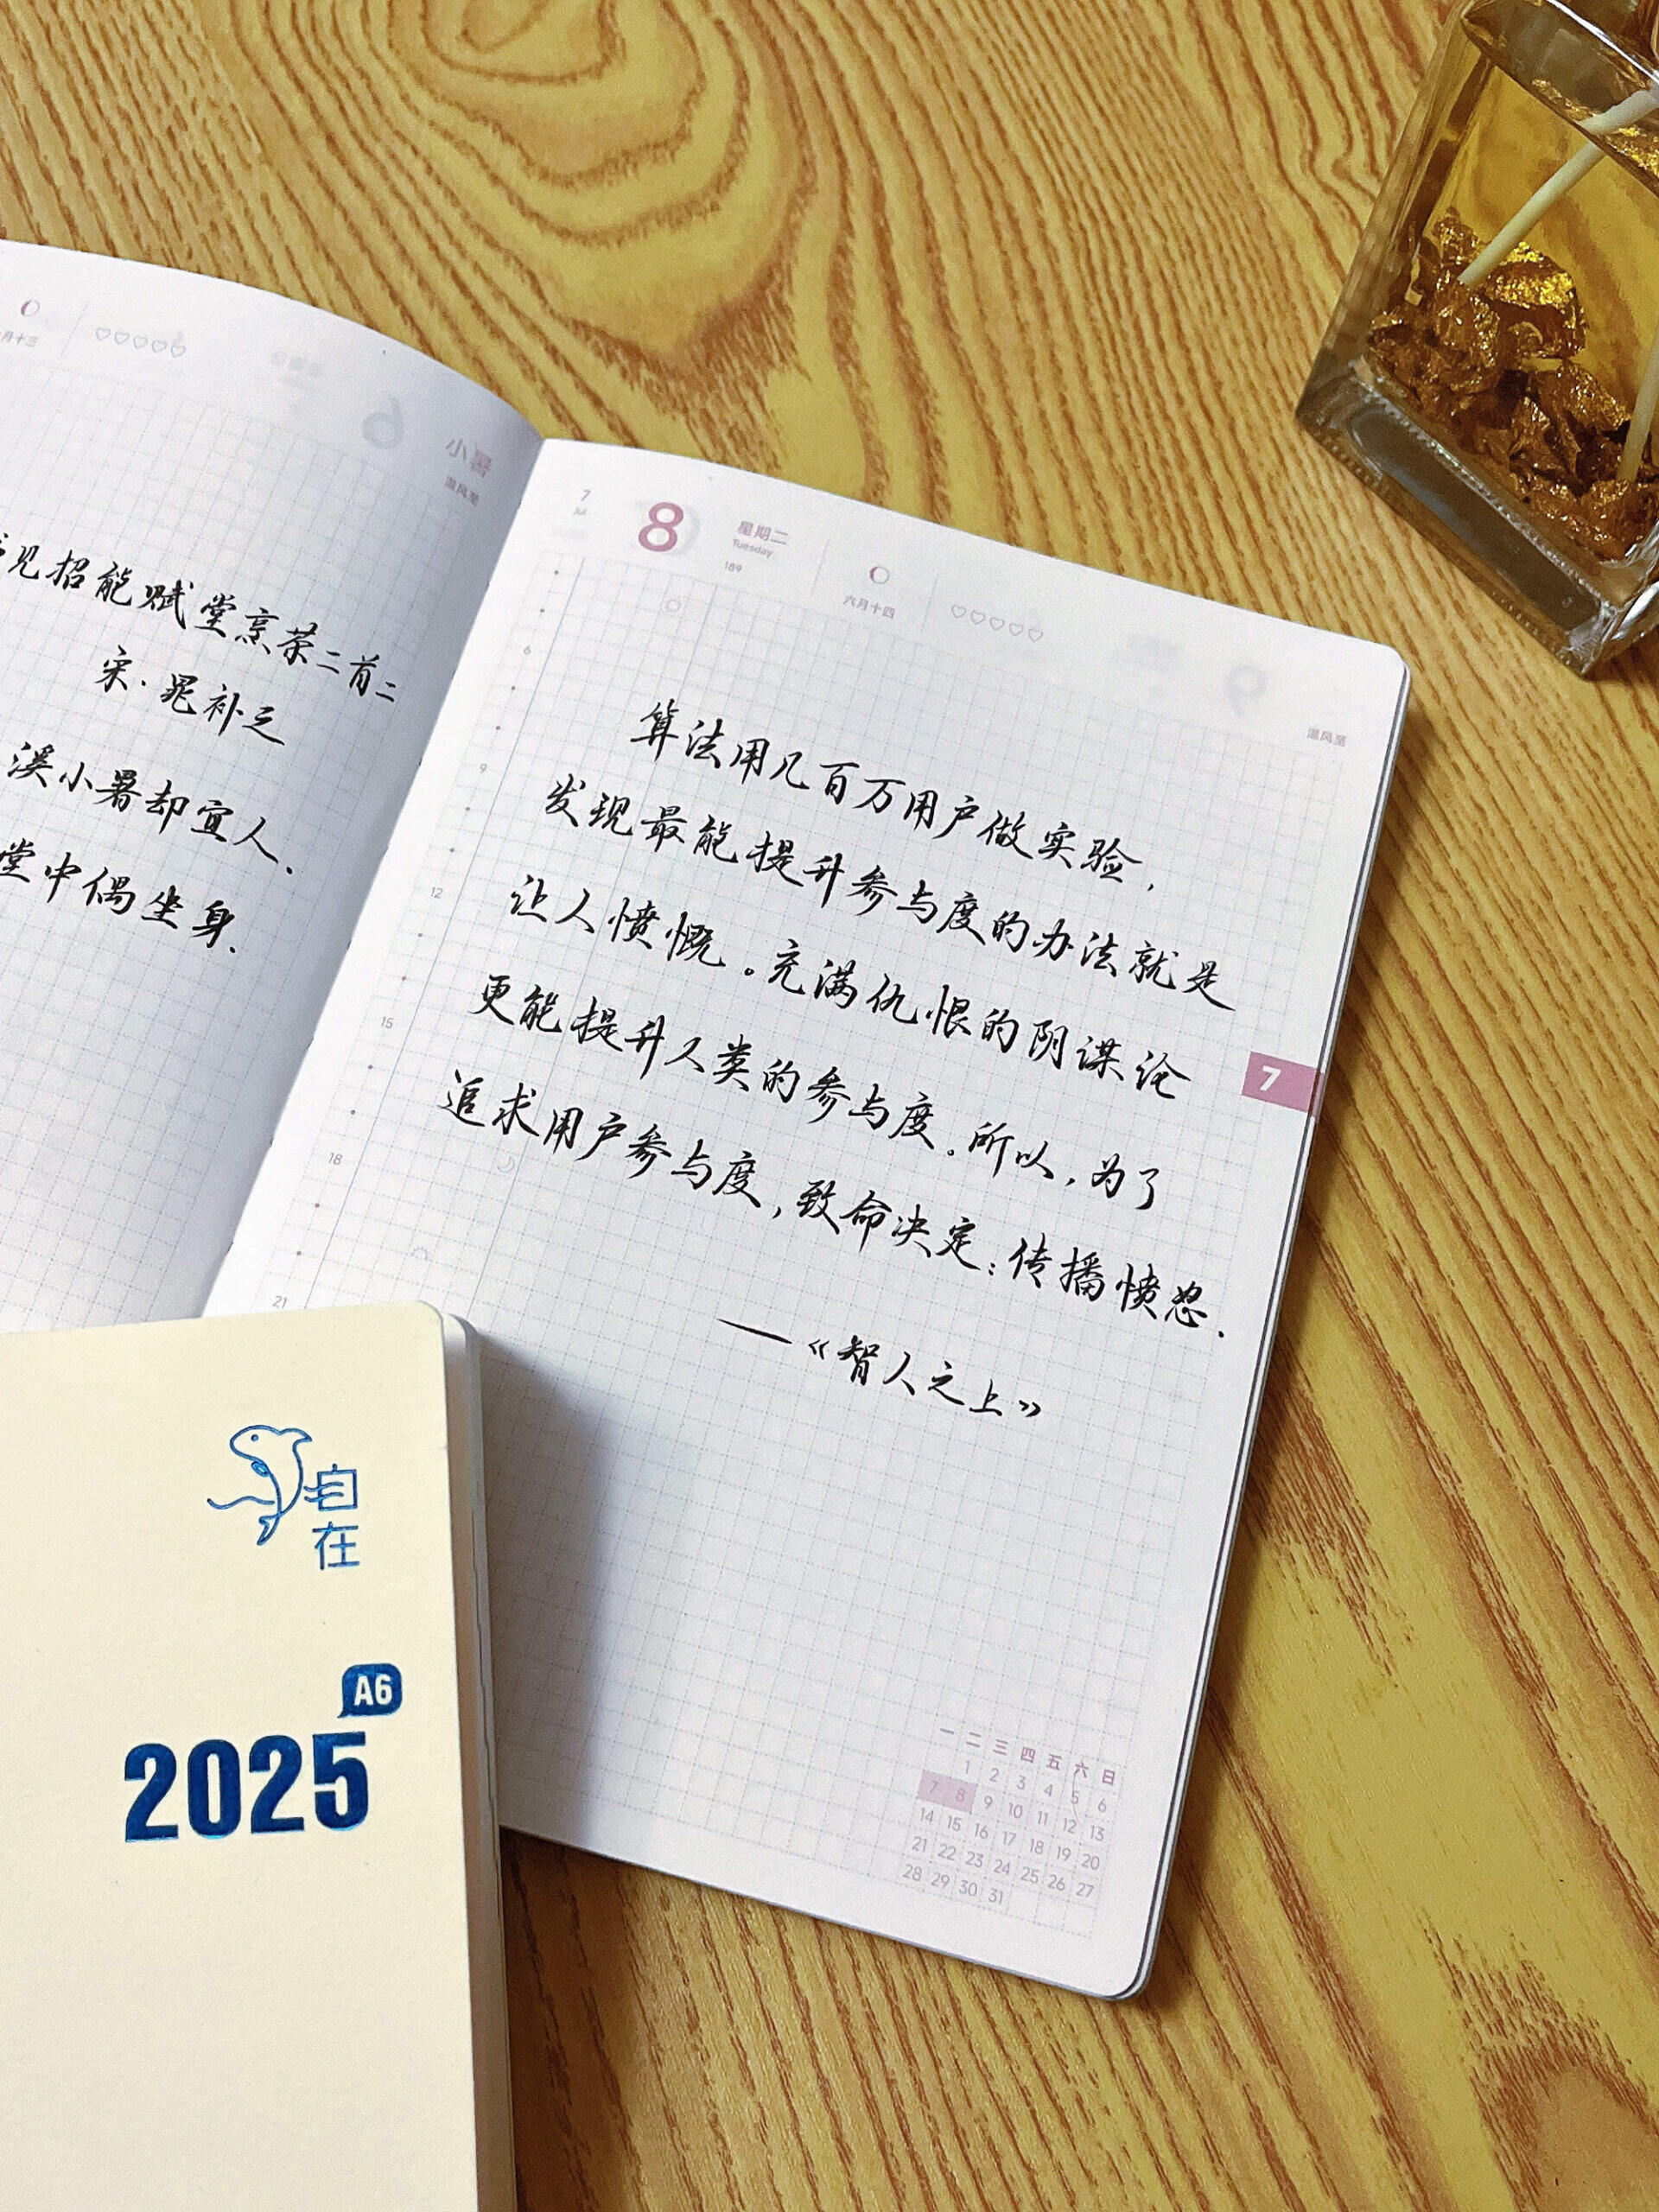 月十三
小暑
温风至
见招能赋堂烹茶二首二
宋·晁补之
溪小暑却宜人.
堂中偶坐身.
7
Jul
8
星期二
Tuesday
189
六月十四
温风至
6
9
12
15
18
21
算法用几百万用户做实验,
发现最能提升参与度的办法就是
让人愤慨。充满仇恨的阴谋论
更能提升人类的参与度.所以,为了
追求用户参与度,致命决定:传播愤怒.
——《智人之上》
7
一 二 三 四 五 六 日
1 2 3 4 5 6
7 8 9 10 11 12 13
14 15 16 17 18 19 20
21 22 23 24 25 26 27
28 29 30 31
自在
A6
2025